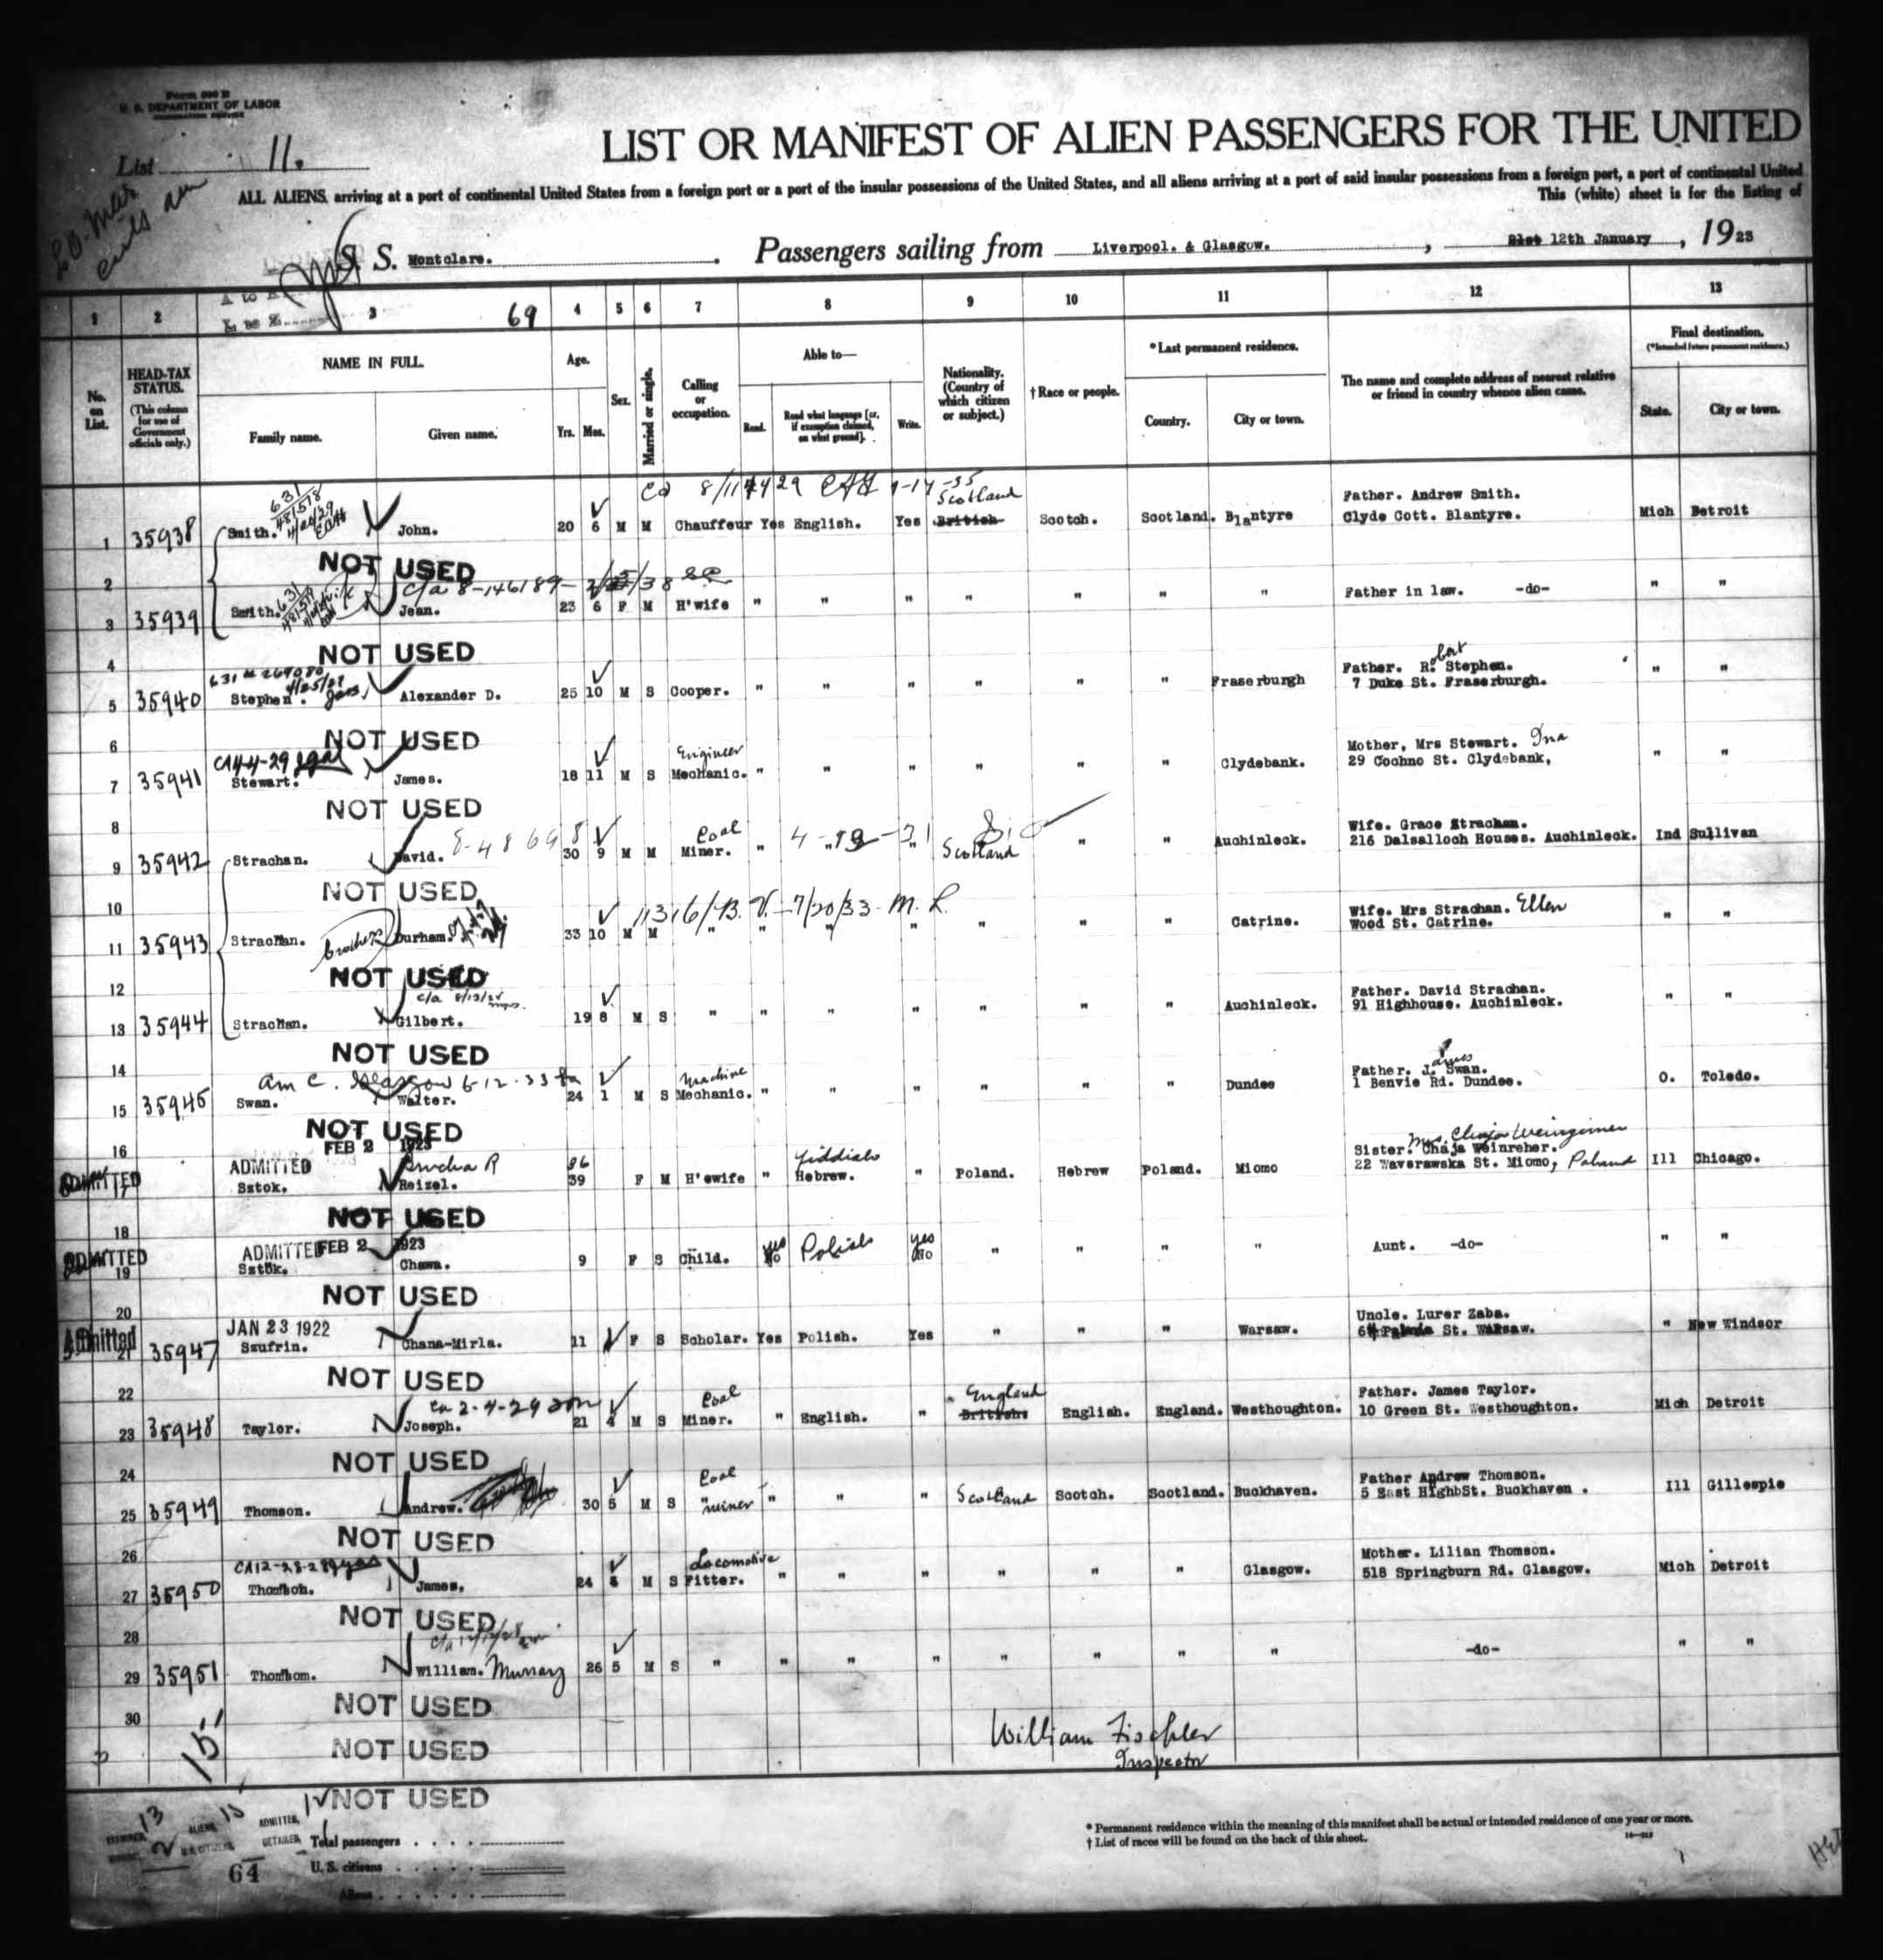 Form 500 B
U. S. DEPARTMENT OF LABOR
IMMIGRATION SERVICE
List 11.
LIST OR MANIFEST OF ALIEN PASSENGERS FOR THE UNITED
ALL ALIENS arriving at a port of continental United States from a foreign port or a port of the insular possessions of the United States, and all aliens arriving at a port of said insular possessions from a foreign port, a port of continental United
This (white) sheet is for the listing of
S. S. Montclare. Passengers sailing from Liverpool. & Glasgow. , 12th January , 1923
1 2 3 69 4 5 6 7 8 9 10 11 12 13
No. on List.
HEAD-TAX STATUS.
(This column for use of Government officials only.)
NAME IN FULL.
Family name. Given name.
Age.
Yrs. Mos.
Sex.
Married or single.
Calling or occupation.
Able to—
Read. Read what language [or, if exemption claimed, on what ground]. Write.
Nationality. (Country of which citizen or subject.)
† Race or people.
* Last permanent residence.
Country. City or town.
The name and complete address of nearest relative or friend in country whence alien came.
Final destination.
(*Intended future permanent residence.)
State. City or town.
Scotland
1 35938 Smith. John. 20 6 M M Chauffeur Yes English. Yes British Scotch. Scotland. Blantyre Father. Andrew Smith. Clyde Cott. Blantyre. Mich Detroit
2 NOT USED
c/a 8-146189
3 35939 Smith. Jean. 23 6 F M H'wife " " " " " " " Father in law. -do- " "
4 NOT USED
5 35940 Stephen. Alexander D. 25 10 M S Cooper. " " " " " " Fraserburgh Father. Robert Stephen. 7 Duke St. Fraserburgh. " "
6 NOT USED
7 35941 Stewart. James. 18 11 M S Engineer Mechanic. " " " " " " Clydebank. Mother, Mrs Stewart. Ina 29 Cochno St. Clydebank, " "
8 NOT USED
9 35942 Strachan. David. 30 9 M M Coal Miner. " " " Scotland " " Auchinleck. Wife. Grace Strachan. 216 Dalsalloch Houses. Auchinleck. Ind Sullivan
10 NOT USED
11316/B. V. - 7/20/33. M. L.
11 35943 Strachan. brother Durham. 33 10 M M " " " " " " " Catrine. Wife. Mrs Strachan. Ellen Wood St. Catrine. " "
12 NOT USED
13 35944 Strachan. Gilbert. 19 8 M S " " " " " " " Auchinleck. Father. David Strachan. 91 Highhouse. Auchinleck. " "
14 NOT USED
am c. Glasgow 6-12-33
15 35945 Swan. Walter. 24 1 M S Machine Mechanic. " " " " " " Dundee Father. James Swan. 1 Benvie Rd. Dundee. O. Toledo.
16 NOT USED
FEB 2 1923
ADMITTED
ADMITTED 17 Sztok. Reizel. 39 F M H'ewife " Yiddish Hebrew. " Poland. Hebrew Poland. Miomo Sister. Mrs. Chaja Weinreher. 22 Waverawska St. Miomo, Poland Ill Chicago.
18 NOT USED
ADMITTED FEB 2 1923
ADMITTED 19 Sztok. Chawa. 9 F S Child. yes No Polish yes No " " " " Aunt. -do- " "
20 NOT USED
JAN 23 1922
Admitted 21 35947 Szufrin. Chana-Mirla. 11 F S Scholar. Yes Polish. Yes " " " Warsaw. Uncle. Lurer Zaba. St. Warsaw. " New Windsor
22 NOT USED
ca 2-4-29
23 35948 Taylor. Joseph. 21 4 M S Coal Miner. " English. " England British English. England. Westhoughton. Father. James Taylor. 10 Green St. Westhoughton. Mich Detroit
24 NOT USED
25 35949 Thomson. Andrew. 30 5 M S Coal miner " " " Scotland Scotch. Scotland. Buckhaven. Father Andrew Thomson. 5 East HighbSt. Buckhaven. Ill Gillespie
26 NOT USED
27 35950 Thomson. James. 24 M S Locomotive Fitter. " " " " " " Glasgow. Mother. Lilian Thomson. 518 Springburn Rd. Glasgow. Mich Detroit
28 NOT USED
29 35951 Thomson. William. Murray 26 5 M S " " " " " " " " -do- " "
30 NOT USED
NOT USED
William Fischler
Inspector
NOT USED
Total passengers
U. S. citizens
Aliens
64
* Permanent residence within the meaning of this manifest shall be actual or intended residence of one year or more.
† List of races will be found on the back of this sheet.